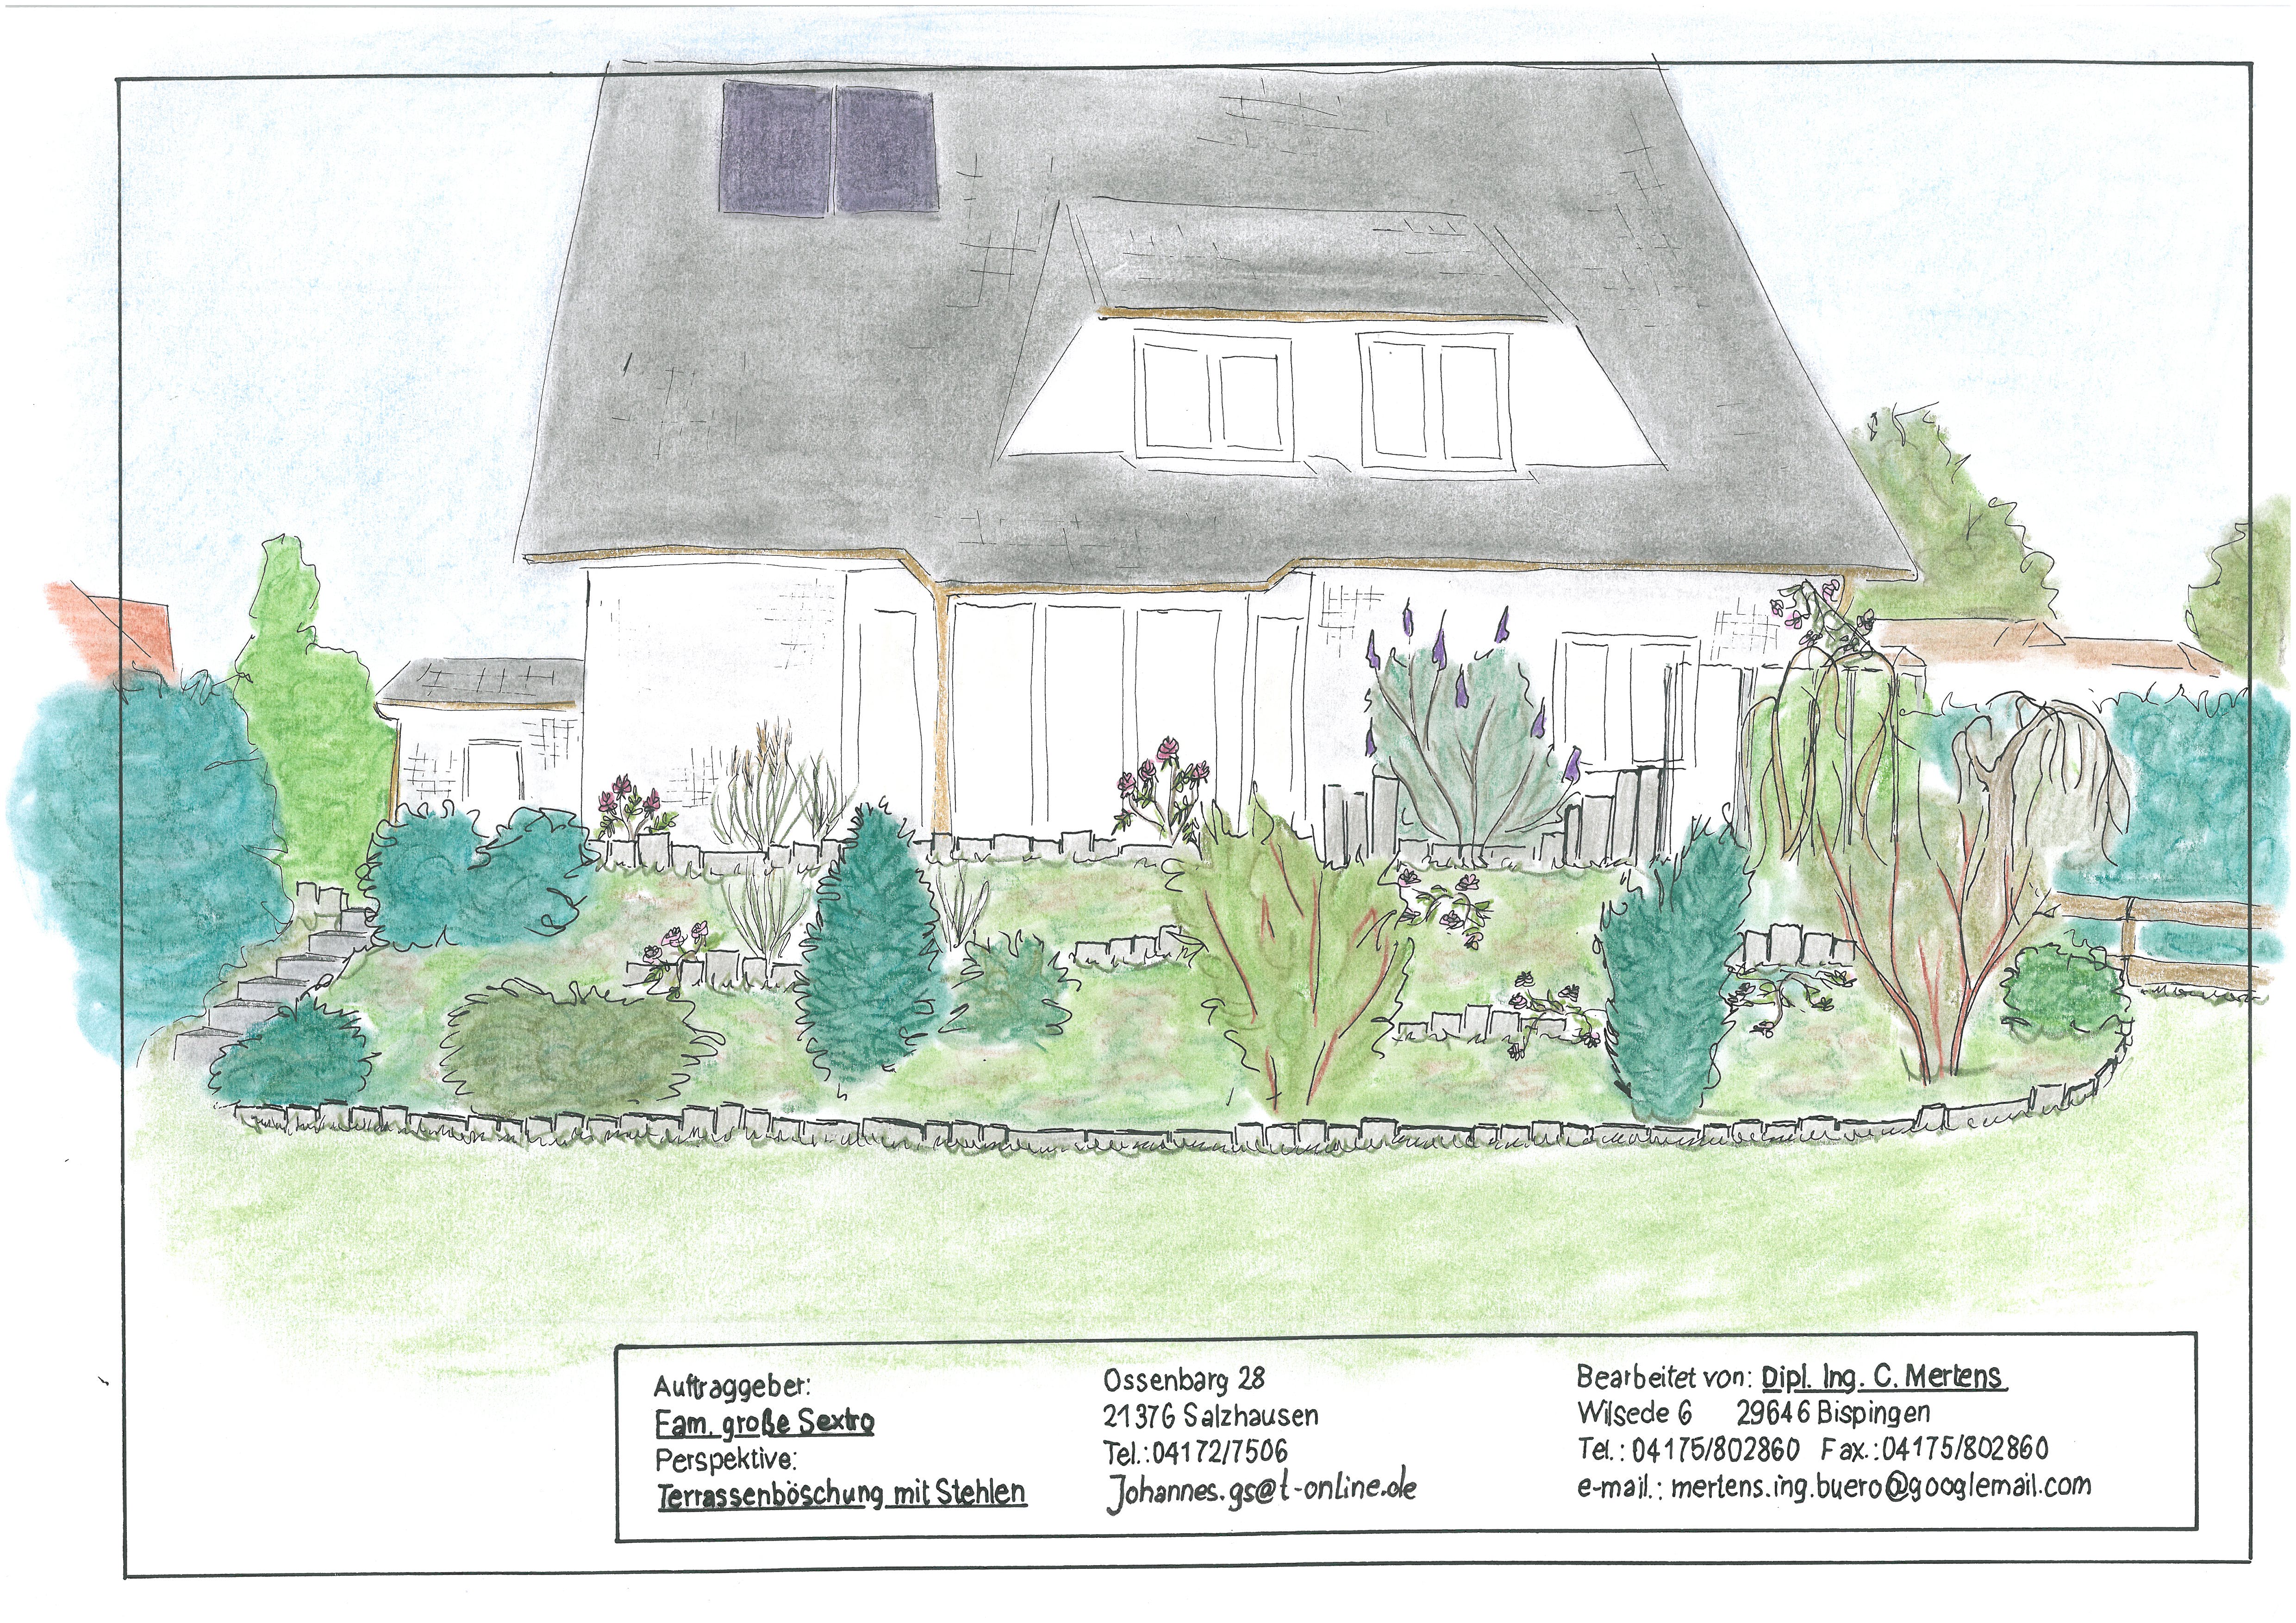 Auftraggeber:
Fam. große Sextro
Perspektive:
Terrassenböschung mit Stehlen
Ossenbarg 28
21376 Salzhausen
Tel.:04172/7506
Johannes.gs@t-online.de
Bearbeitet von: Dipl. Ing. C. Mertens
Wilsede 6 29646 Bispingen
Tel.: 04175/802860 Fax.:04175/802860
e-mail.: mertens.ing.buero@googlemail.com